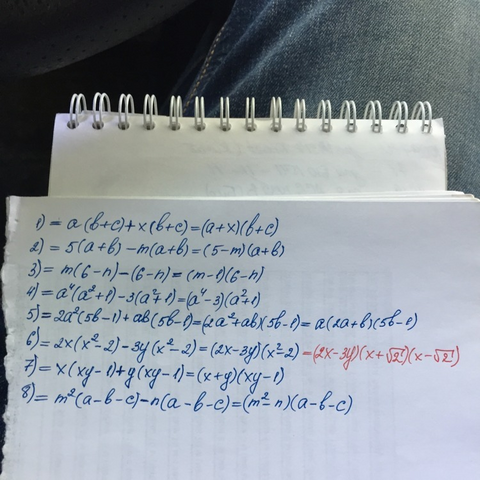 1) = a(b+c)+x(b+c)=(a+x)(b+c)
2) = 5(a+b)-m(a+b)=(5-m)(a+b)
3) = m(6-n)-(6-n)=(m-1)(6-n)
4) = a⁴(a²+1)-3(a²+1)=(a⁴-3)(a²+1)
5) = 2a²(5b-1)+ab(5b-1)=(2a²+ab)(5b-1)=a(2a+b)(5b-1)
6) = 2x(x²-2)-3y(x²-2)=(2x-3y)(x²-2)=(2x-3y)(x+√2)(x-√2)
7) = x(xy-1)+y(xy-1)=(x+y)(xy-1)
8) = m²(a-b-c)-n(a-b-c)=(m²-n)(a-b-c)